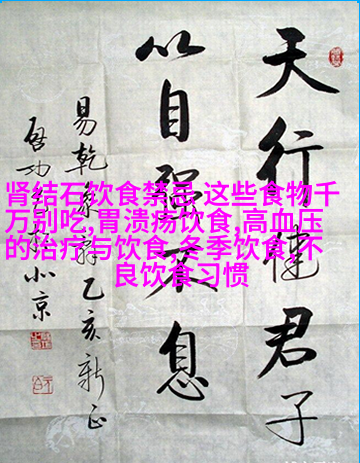 肾结石饮食禁忌,这些食物千
万别吃,胃溃疡饮食,高血压
的治疗与饮食,冬季饮食,不
良饮食习惯
天行健君子
以自彊不息
易乾象辭乙亥新正
啓功書於北京